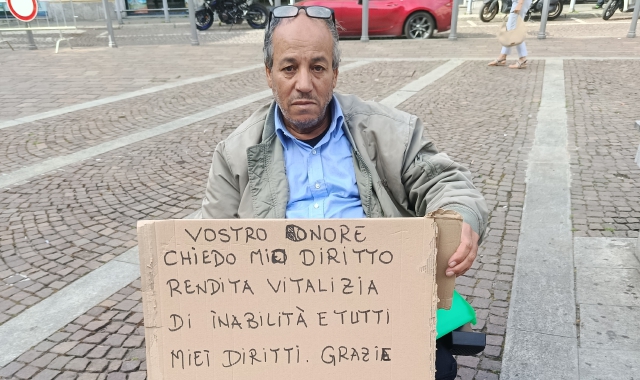 VOSTRO ONORE
CHIEDO MIO DIRITTO
RENDITA VITALIZIA
DI INABILITÀ E TUTTI
MIEI DIRITTI. GRAZIE